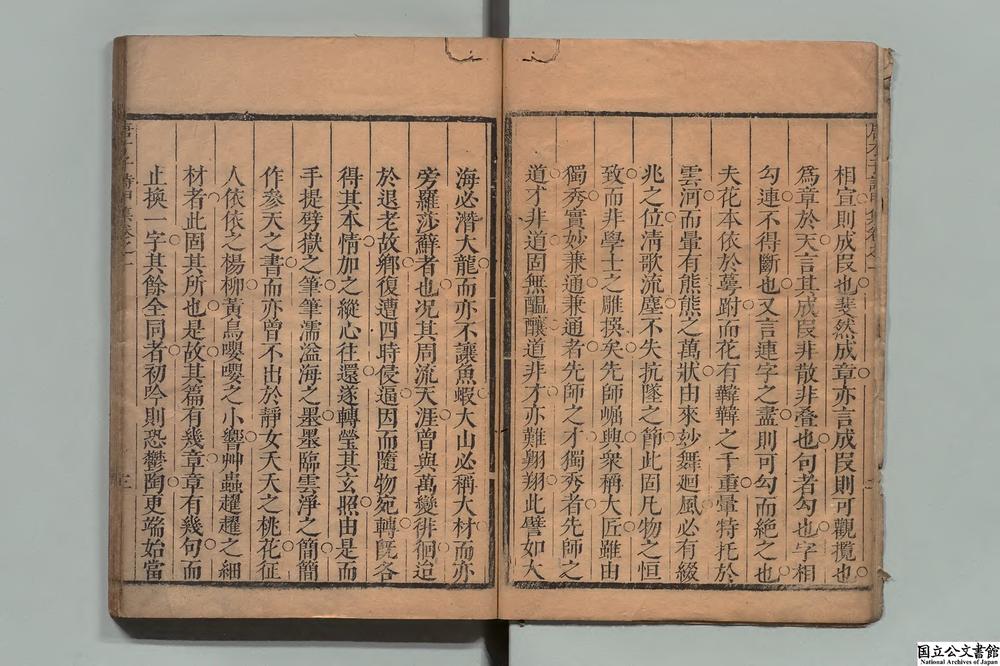 相宣則成叚也斐然成章亦言成叚則可觀攬也
爲章於天言其成叚非散非叠也句者勾也字相
勾連不得斷也又言連字之盡則可勾而絶之也
夫花本依於蕚跗而花有韡韡之千重暈特托於
雲河而暈有熊熊之萬狀由來玅舞迴風必有綴
兆之位淸歌流塵不失抗墜之節此固凡物之恒
致而非學士之雕撰矣先師崛興衆稱大匠雖由
獨秀實妙兼通兼通者先師之才獨秀者先師之
道才非道固無醞釀道非才亦難翔翔此譬如大
海必潛大龍而亦不讓魚蝦大山必稱大材而亦
旁羅莎蘚者也况其周流天涯曾與萬變徘徊迨
於退老故鄉復遭四時侵逼因而隨物宛轉旣各
得其本情加之縱心往還遂轉瑩其玄照由是而
手提劈嶽之筆筆濡溢海之墨墨臨雲淨之簡簡
作參天之書而亦曾不出於靜女夭夭之桃花征
人依依之楊柳黃鳥嚶嚶之小響艸蟲趯趯之細
材者此固其所也是故其篇有幾章章有幾句而
止換一字其餘全同者初吟則恐鬱陶更端始當
三
国立公文書館
National Archives of Japan